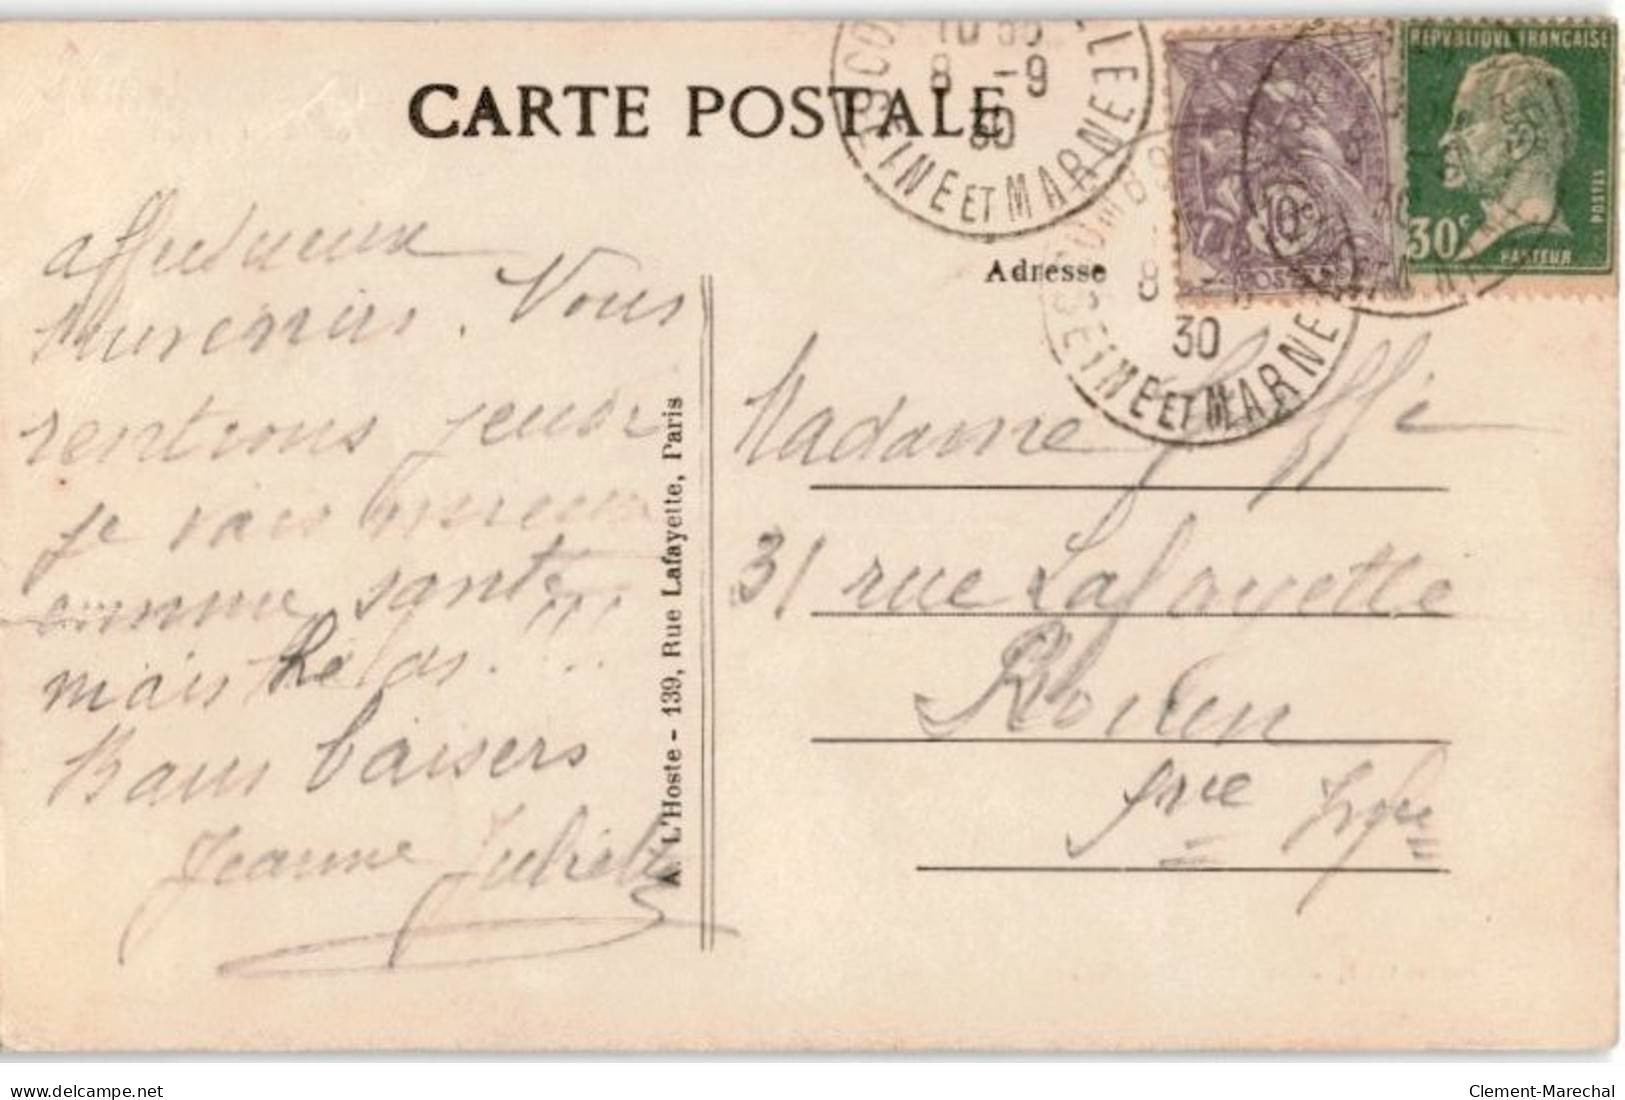 CARTE POSTALE
10
8 -9
30
SEINE ET MARNE
RÉPUBLIQUE FRANÇAISE
10c
POSTES
30c
POSTES
PASTEUR
8
30
SEINE ET MARNE
Adresse
affectueux
souvenirs. Vous
rentrons jeudi
je vais
comme santé !!!
mais hélas...
Bons baisers
Jeanne Juliette
A. L'Hoste - 139, Rue Lafayette, Paris
Madame
31 rue Lafayette
Rouen
Sne Infre
delcampe.net
Clement-Marechal